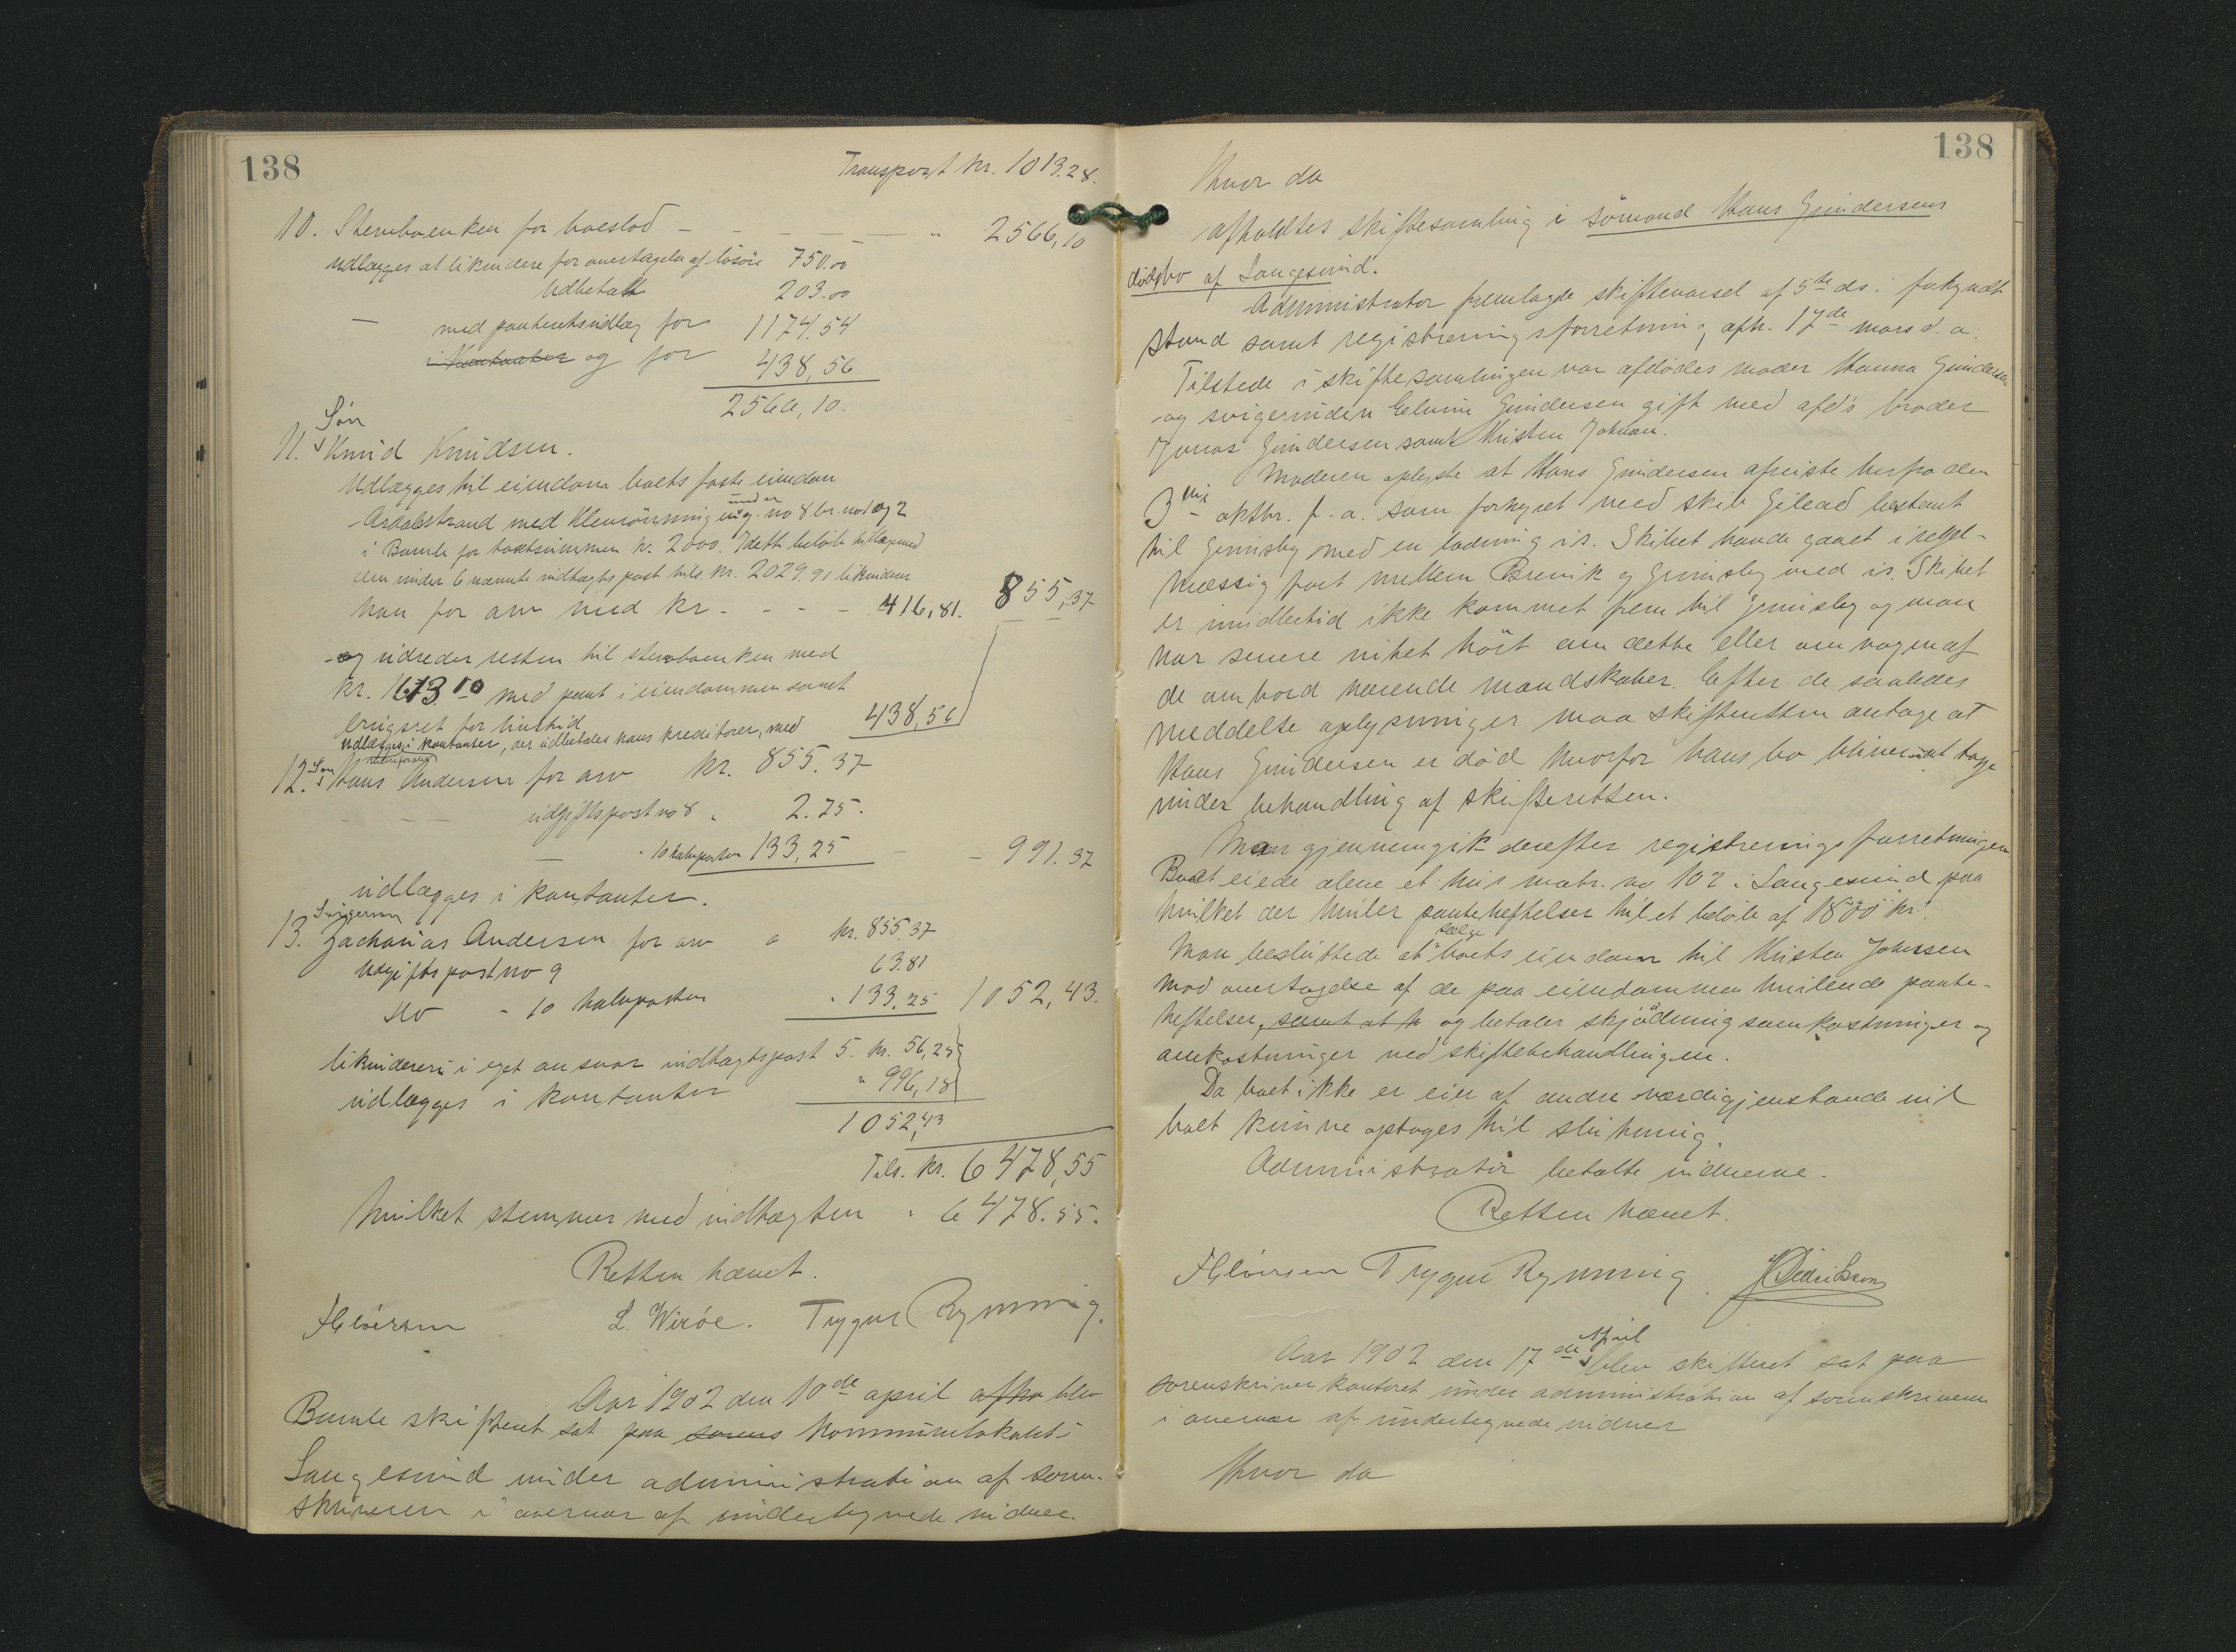 138
Transport kr. 1013.28.
10. Stervboenken for boeslod - - - - - - " 2566,10
udlægges at likvidere for overtagelse af lösöre 750.00
Udbetalt 203.00
- med panteretsudlæg for 1174.54
i Kontanter og for 438,56
2566,10.
Sön
11. Knud Knudsen.
Udlægges til eiendom boets faste eiendom
Aasdalstrand med Klevrönning under
g. no 8 br. no 1 og 2
i Bamle for taxtsummen kr. 2000. I dette beløb tillægges med
den under 6 nævnte indtægts post tils. kr. 2029.91 likviderer
han for arv med kr. - - - 416,81. 855,37
og udreder resten til stervboenken med
kr. 1613.10 med pant i eiendommen samt
brugsret for livstid
udlægges i kontanter, der udbetales hans kreditorer, med 438,56
12. Sön Hans Andersen for arv kr. 855.37
- - udgiftspost no 8 " 2.75.
- " 10 halvparten 133,25 - - 991.37
udlægges i kontanter.
Svigersøn
13. Zacharias Andersen for arv a kr. 855.37
Udgiftspost no 9 63.81
do - 10 halvparten " 133.25 1052,43.
likviderers i eget ansvar indtægtspost 5. kr. 56,25
udlægges i kontanter " 996,18
1052,43
Tils. kr. 6478,55
hvilket stemmer med indtægten " 6478.55.
Retten hævet.
L. Wiröe. Trygve Rynning.
Aar 1902 den 10de april afho blev
Bamle skifteret sat paa sorens Kommunelokalet i
Langesund under administration af soren-
skriveren i overvær af undertegnede vidner.
138
Hvor da
afholdtes skiftesamling i sömand Hans Gundersens
dödsbo af Langesund.
Administrator fremlagde skiftevarsel af 5te ds. i forkyndt
stand samt registreringsforretning afh. 17de mars d. a.
Tilstede i skiftesamlingen var afdødes moder Hanna Gundersen
og svigerinden Elvine Gundersen gift med afd's broder
Jonas Gundersen samt Kristen Johnsen.
Moderen oplyste at Hans Gundersen afreiste herfra den
3die oktbr. f. a. som forhyret med skib Gilead bestemt
til Grimsby med en ladning is. Skibet havde gaaet i regel-
mæssig fart mellem Brevik og Grimsby med is. Skibet
er imidlertid ikke kommet frem til Grimsby og man
har senere intet hört om dette eller om nogen af
de ombord værende mandskaber. Efter de saaledes
meddelte oplysninger maa skifteretten antage at
Hans Gundersen er död hvorfor hans bo bliver at tage
under behandling af skifteretten.
Man gjennemgik derefter registreringsforretningen
Boet eiede alene et hus matr. no 102 i Langesund paa
hvilket der hviler panteheftelser til et beløb af 1800 kr.
Man besluttede at sælge boets eiendom til Kristen Johnsen
mod overtagelse af de paa eiendommen hvilende pante-
heftelser, samt at h og betaler skjødningsomkostninger og
omkostninger ved skiftebehandlingen.
Da boet ikke er eier af andre værdigjenstande vil
boet kunne optages til slutning.
Administrator betalte vidnerne.
Retten hævet.
Trygve Rynning
Aar 1902 den 17de April blev skifteret sat paa
sorenskriverkontoret under administration af sorenskriveren
i overvær af undertegnede vidner
Hvor da